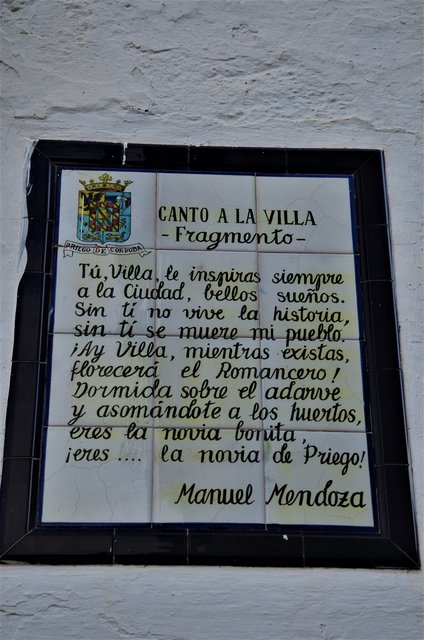 PRIEGO DE CORDOBA
CANTO A LA VILLA
-Fragmento-
Tú, Villa, le inspiras siempre
a la Ciudad, bellos sueños.
Sin tí no vive la historia,
sin tí se muere mi pueblo.
¡Ay Villa, mientras existas,
florecerá el Romancero!
Dormida sobre el adarve
y asomándote a los huertos,
eres la novia bonita,
¡eres .... la novia de Priego!
Manuel Mendoza